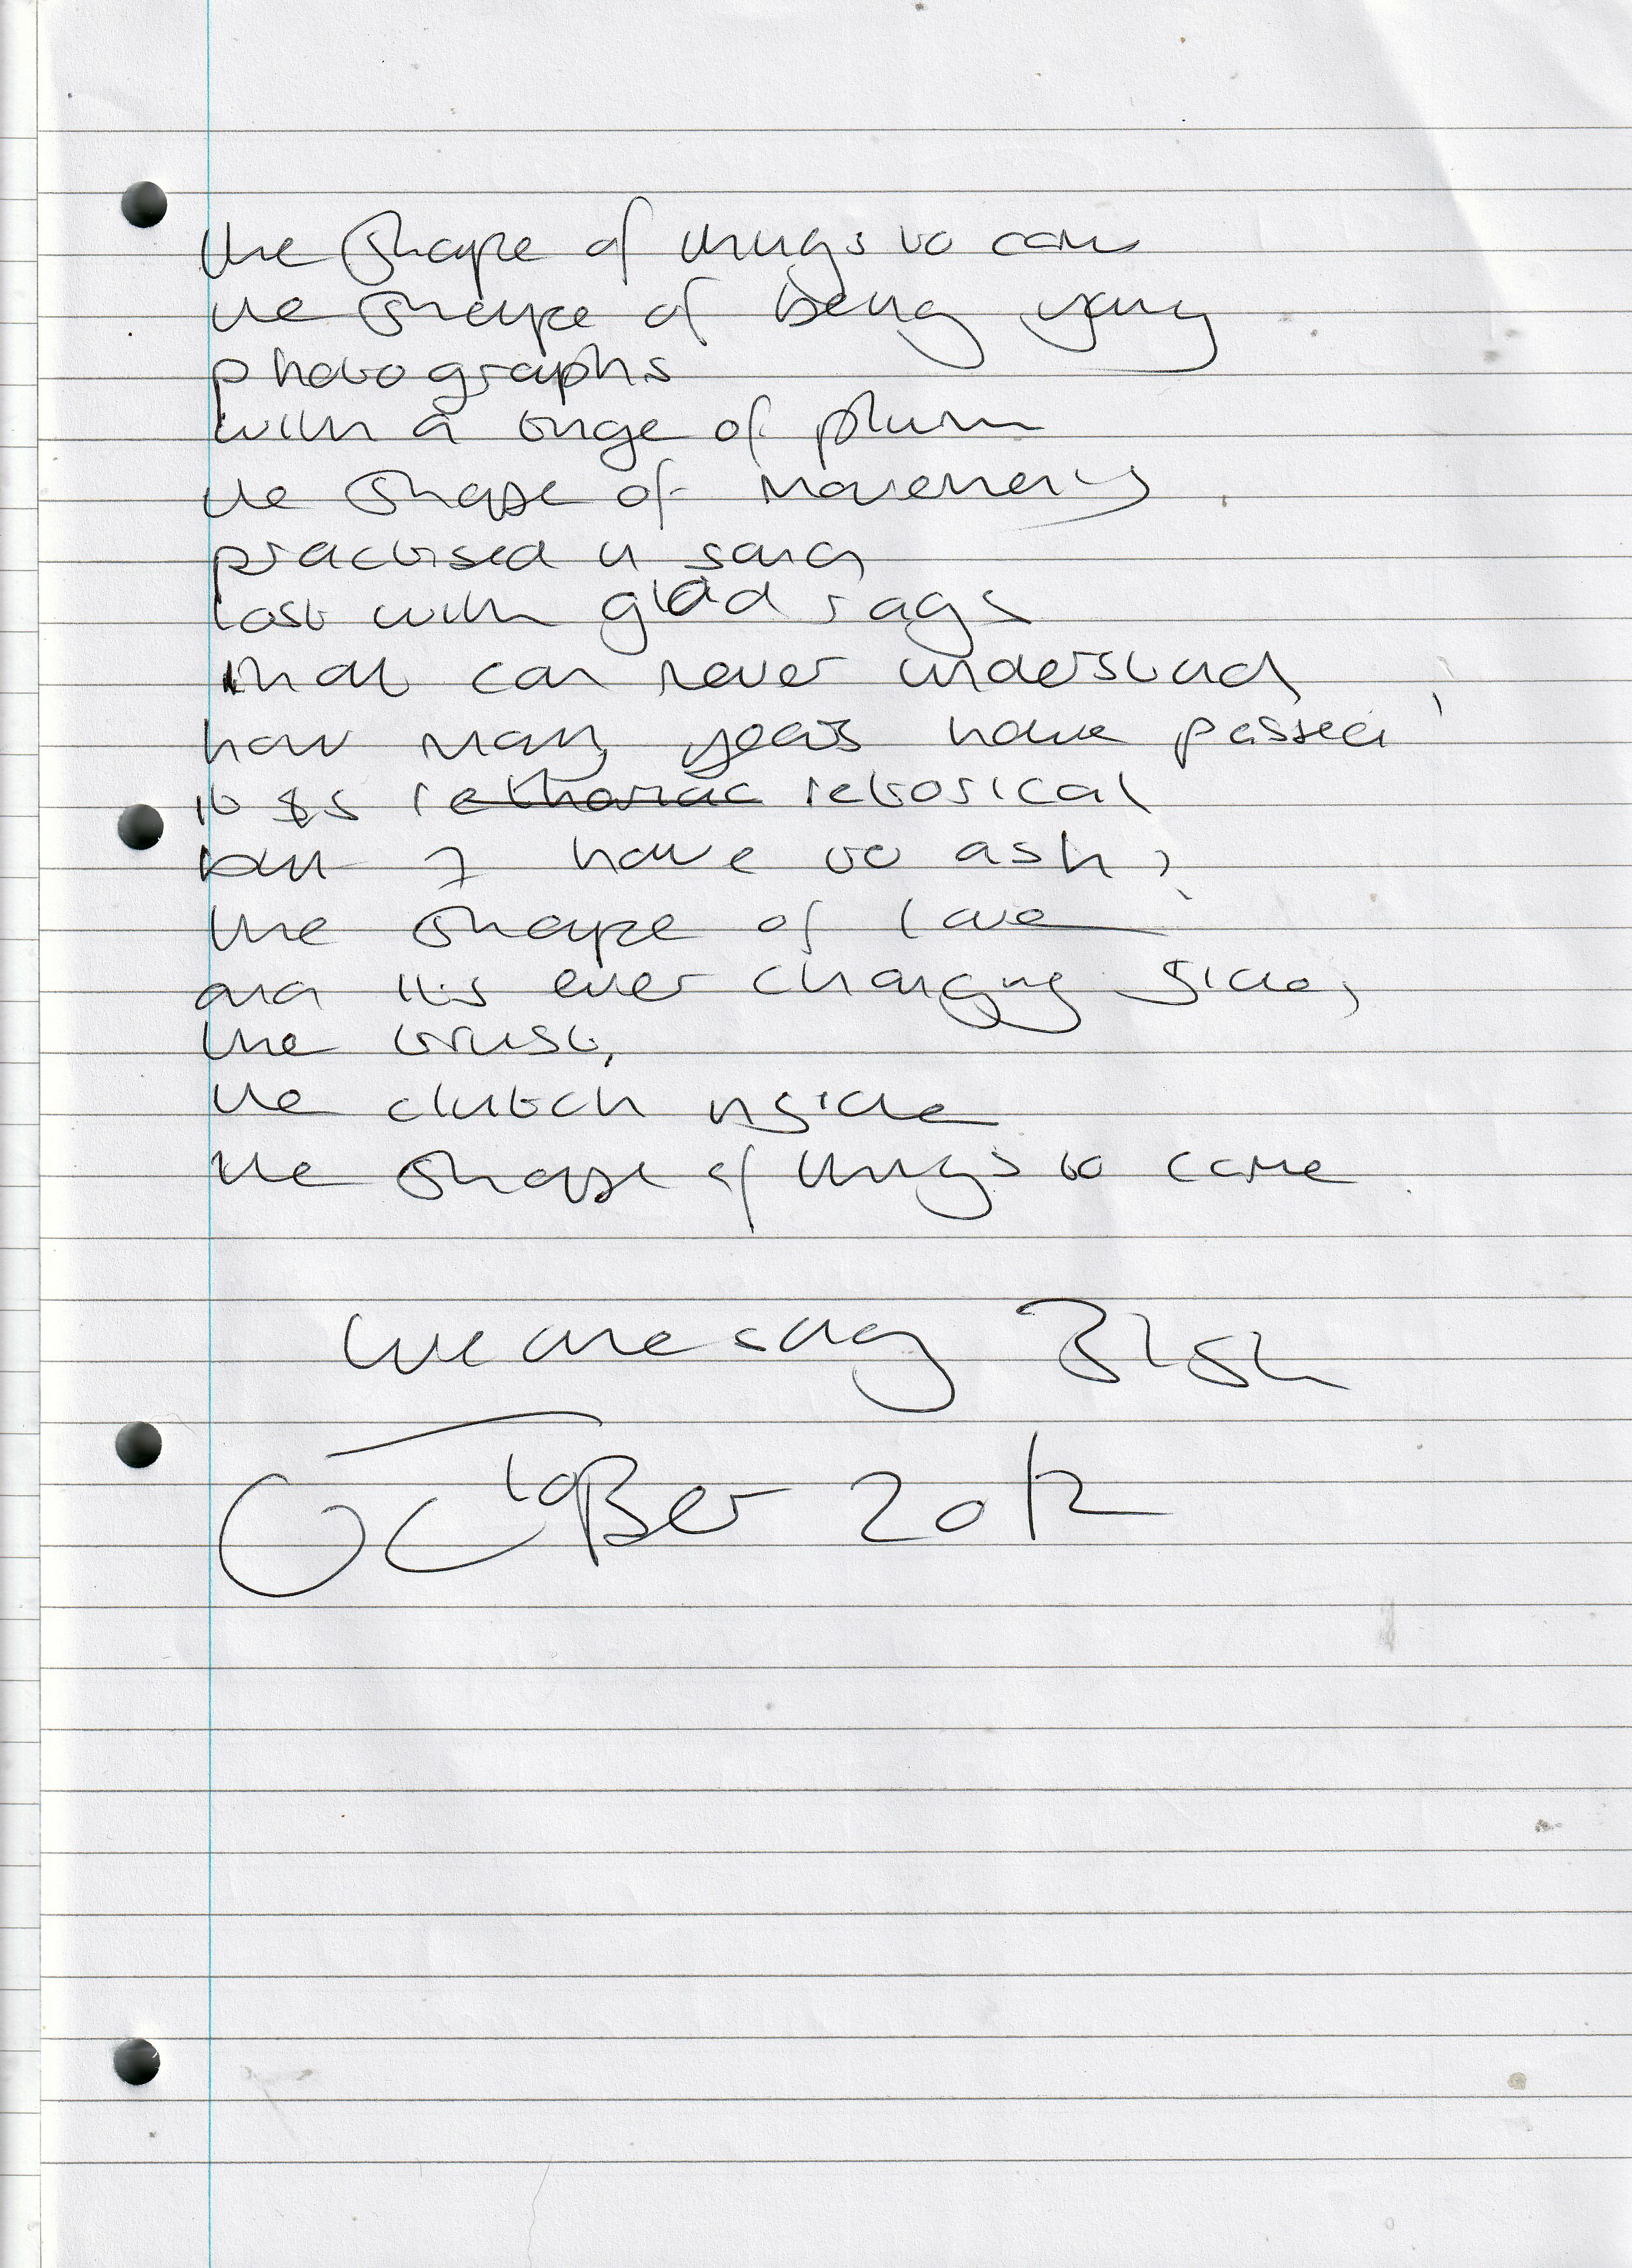 the shape of things to come
the shape of being young
photographs
with a tinge of plum
the shape of movements
practised in sand
lost with glad rags
that can never understand
how many years have passed,
it is retorical
but I have to ask,
the shape of love
and its ever changing side,
the trust,
the clutch inside
the shape of things to come
Wednesday 31st
OctoBer 2012